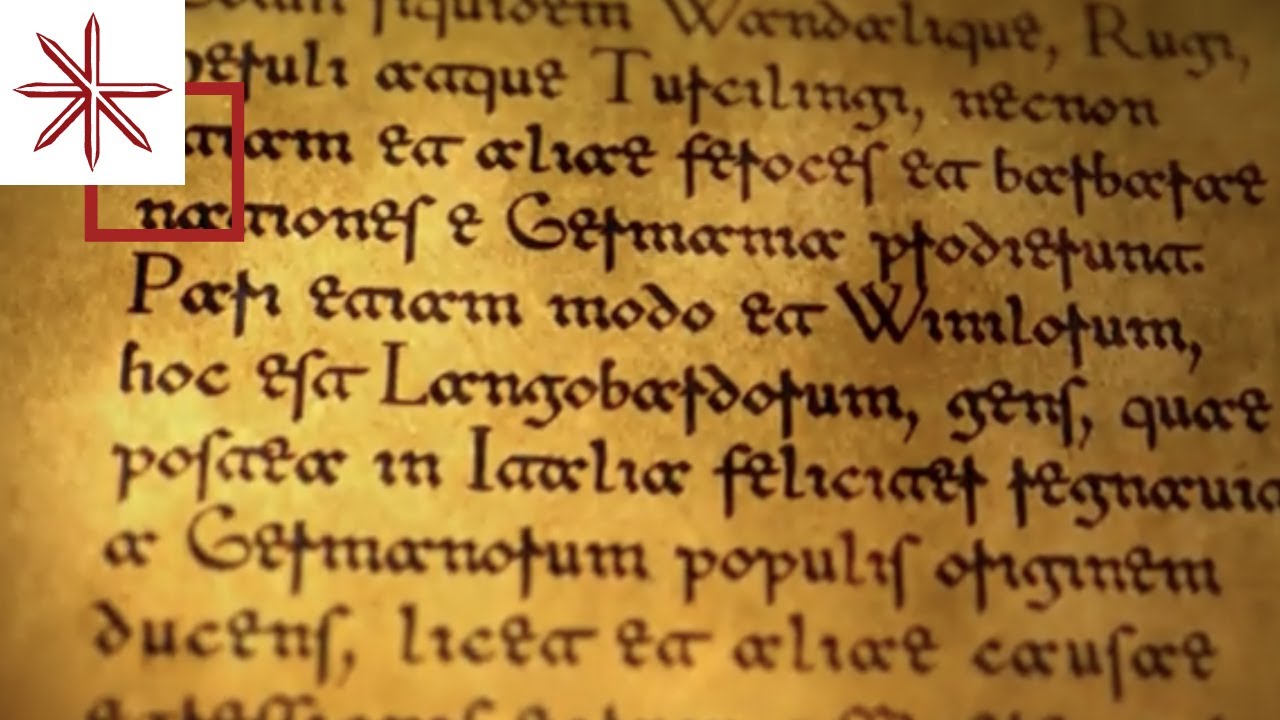 siquidem Wandalique, Rugi,
eruli atque Turcilingi, necnon
tiam et aliae feroceſ et barbarae
nationeſ e Germania prodierunt.
Pari etiam modo et Winilorum,
hoc eſt Langobardorum, genſ, quae
poſtea in Italia feliciter regnaui
a Germanorum populiſ originem
ducenſ, licet et aliae cauſae